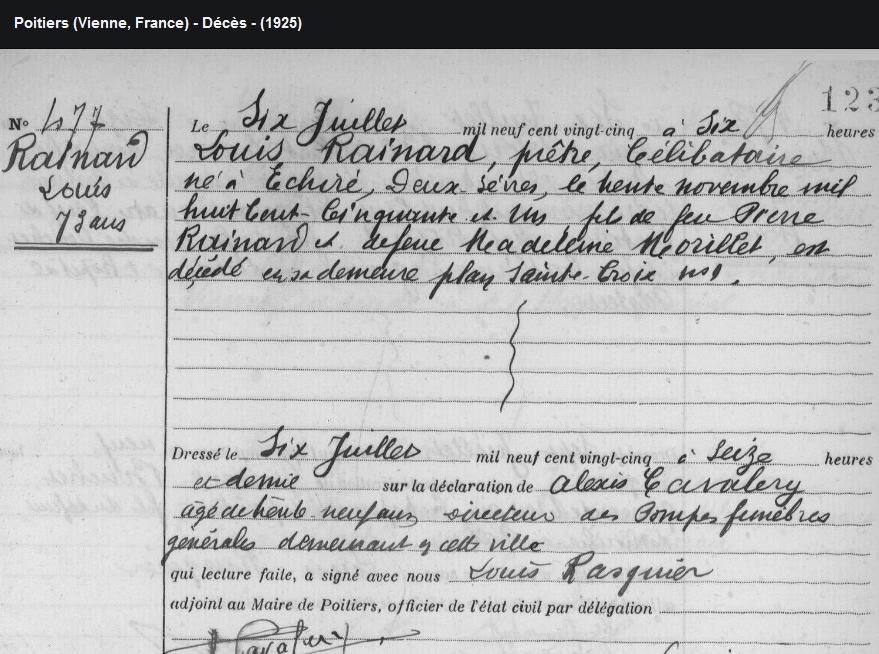 Poitiers (Vienne, France) - Décès - (1925)
123
N° 477
Rainard
Louis
73 ans
Le Six Juillet mil neuf cent vingt-cinq à Six heures
Louis Rainard, prêtre, Célibataire
né à Échiré, Deux-Sèvres, le trente novembre mil
huit Cent-Cinquante et Un fils de feu Pierre
Rainard et de feue Madeleine Morillet, est
décédé en sa demeure plan Sainte-Croix n° 1.
Dressé le Six Juillet mil neuf cent vingt-cinq à Seize heures
et demie sur la déclaration de Alexis Cavalery
âgé de trente neuf ans, directeur des Pompes funèbres
générales demeurant en cette ville
qui lecture faite, a signé avec nous Louis Pasquier
adjoint au Maire de Poitiers, officier de l'état civil par délégation